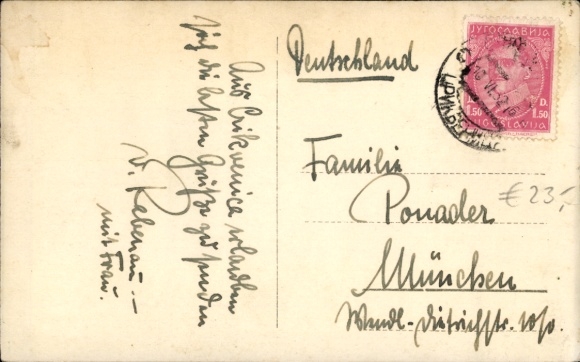 Aus Crikvenica erlauben
sich die besten Grüße zu senden
Rebenau
mit Frau.
Deutschland
Familie
Ponader
München
Wendl-Dietrichstr.
ЈУГОСЛАВИЈА
D.
1.50
1.50
JUGOSLAVIJA
ЦРИКВЕНИЦА
€ 23,-